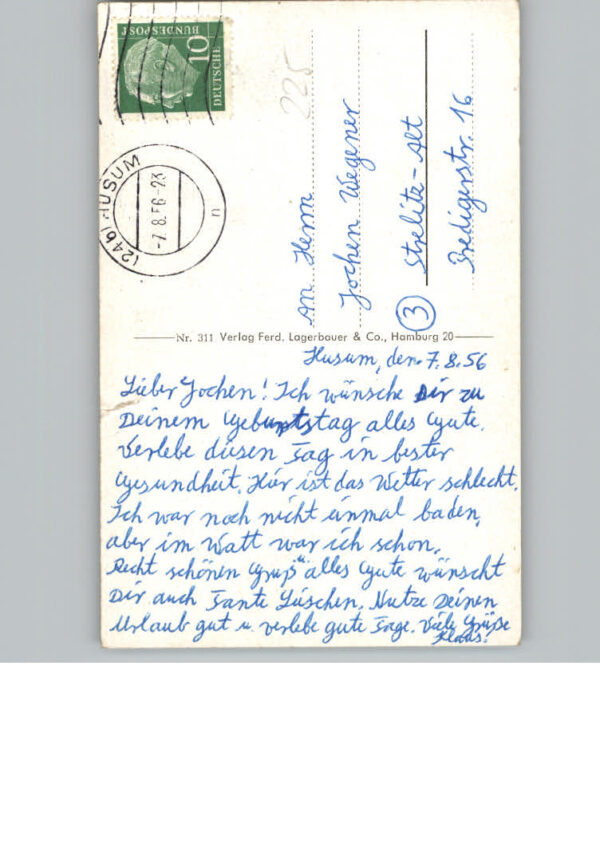 DEUTSCHE
BUNDESPOST
10
(24b) HUSUM
-7.8.56-23
n
225
An Herrn
Jochen Wegener
③ Strelitz-Alt
Predigerstr. 16
Nr. 311 Verlag Ferd. Lagerbauer & Co., Hamburg 20
Husum, den 7.8.56
Lieber Jochen! Ich wünsche Dir zu
Deinem Geburtstag alles Gute.
Verlebe diesen Tag in bester
Gesundheit. Hier ist das Wetter schlecht.
Ich war noch nicht einmal baden,
aber im Watt war ich schon.
Recht schönen Gruß u. alles Gute wünscht
Dir auch Tante Lieschen. Nutze Deinen
Urlaub gut u. verlebe gute Tage. Viele Grüße
Klaus!